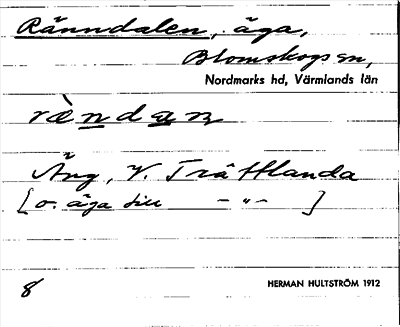 Ränndalen, äga,
Blomskogs sn,
Nordmarks hd, Värmlands län
rændan
Äng, V. Träfflanda
[o. äga till — „ — ]
8 HERMAN HULTSTRÖM 1912